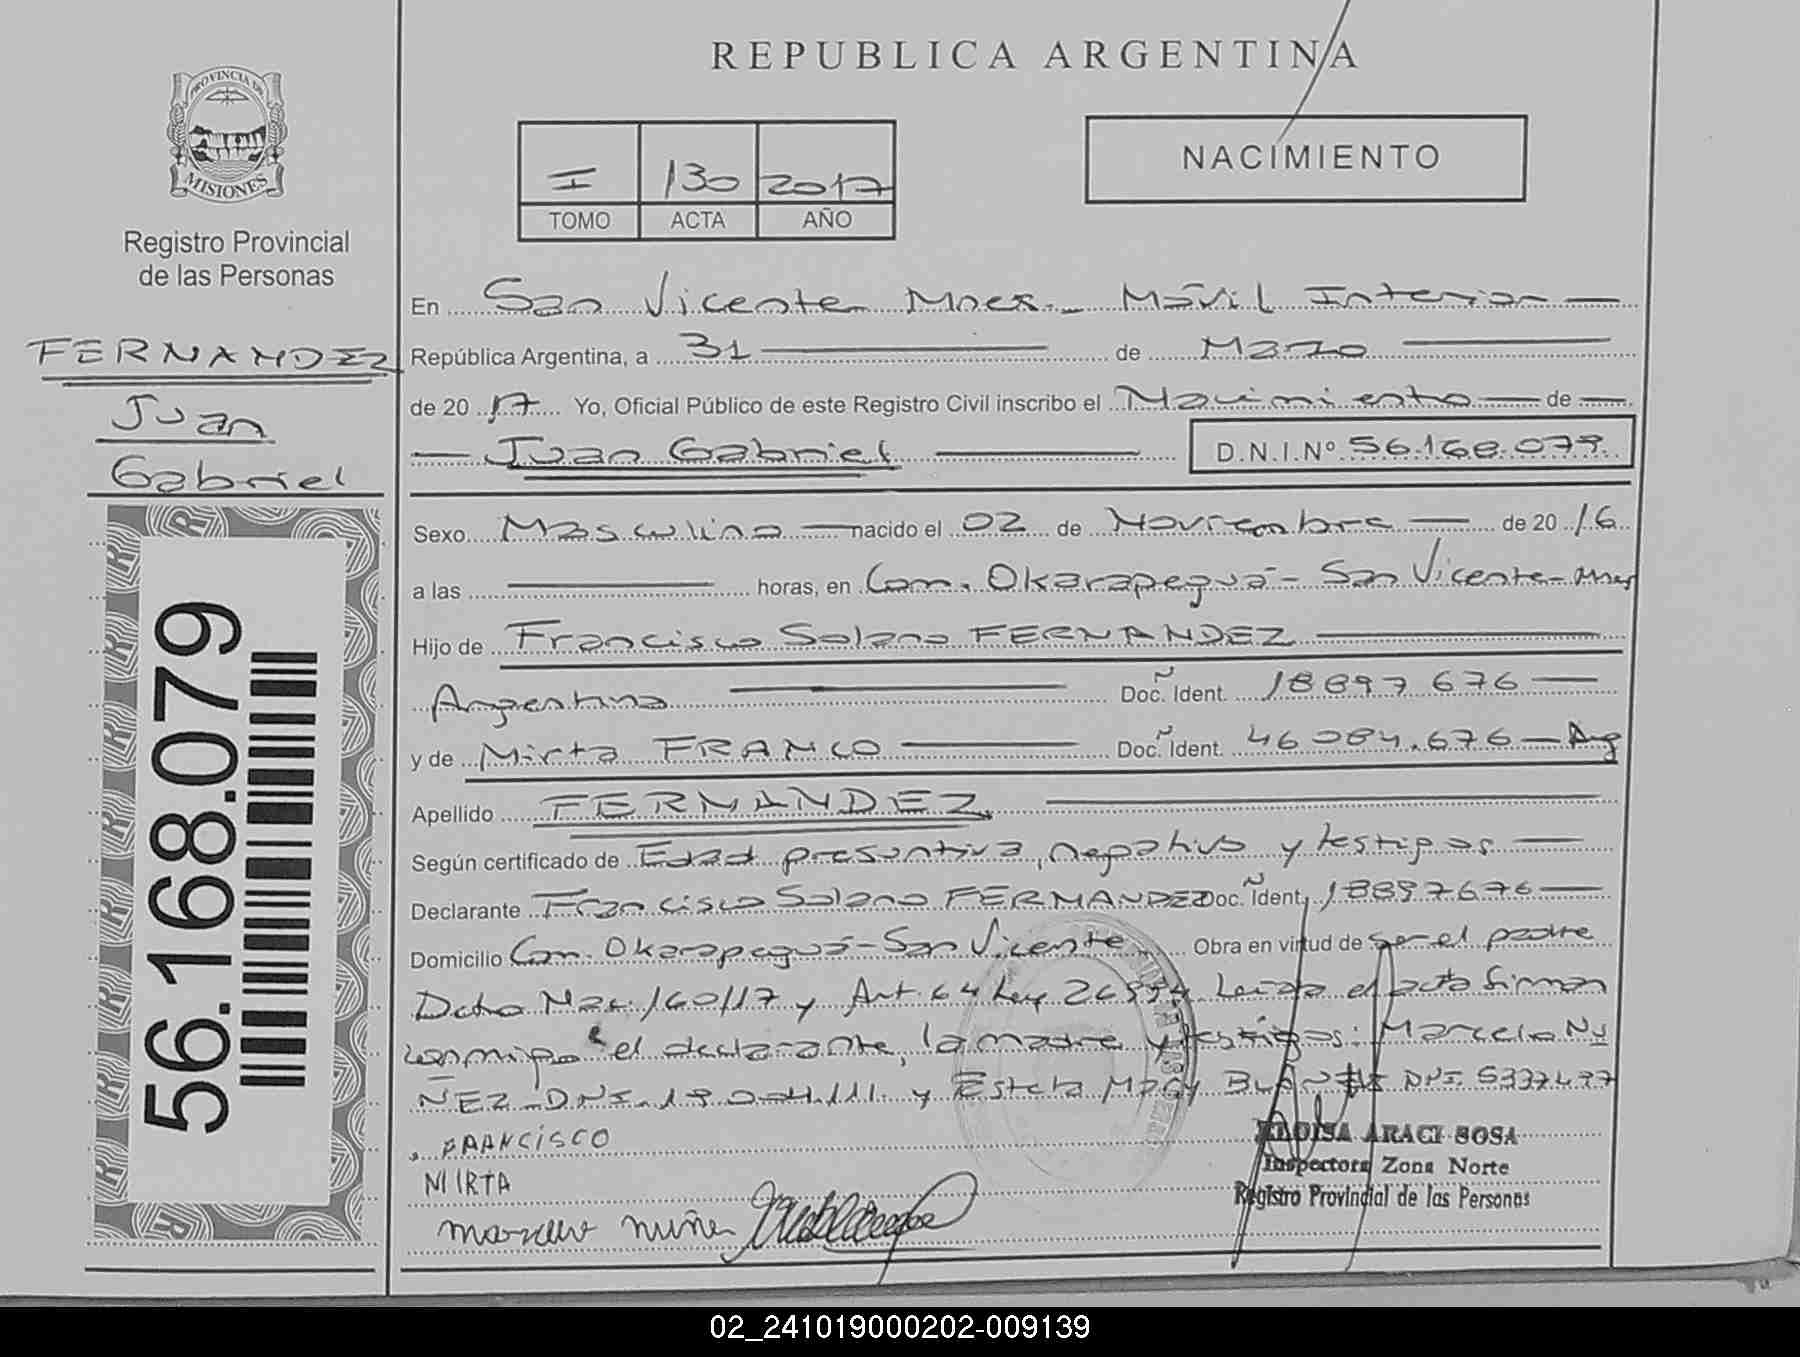 REPUBLICA ARGENTINA
PROVINCIA DE
MISIONES
Registro Provincial
de las Personas
I 130 2017
TOMO ACTA AÑO
NACIMIENTO
FERNANDEZ
Juan
Gabriel
56.168.079
En San Vicente Mnes. Móvil Interior
República Argentina, a 31 de Marzo
de 20 17 Yo, Oficial Público de este Registro Civil inscribo el Nacimiento de
Juan Gabriel D.N.I.Nº 56.168.079
Sexo Masculino nacido el 02 de Noviembre de 20 16
a las horas, en Com. Okarapeguá - San Vicente - Mnes
Hijo de Francisco Solano FERNANDEZ
Argentina Doc. Ident. 18897676
y de Mirta FRANCO Doc. Ident. 46084.676 - Arg
Apellido FERNANDEZ
Según certificado de Edad presuntiva, negativo y testigos
Declarante Francisco Solano FERNANDEZ Doc. Ident. 18897676
Domicilio Com. Okarapeguá - San Vicente Obra en virtud de ser el padre
Dcto Nac. 160/17 y Art. 64 Ley 26994 Leída el acta firman
conmigo el declarante, la madre y testigos: Marcelo NU
ÑEZ DNI. y Estela Mary DNI. 5337477
FRANCISCO
MIRTA
Marcelo nuñez
ELOISA ARACI SOSA
Inspectora Zona Norte
Registro Provincial de las Personas
02_241019000202-009139